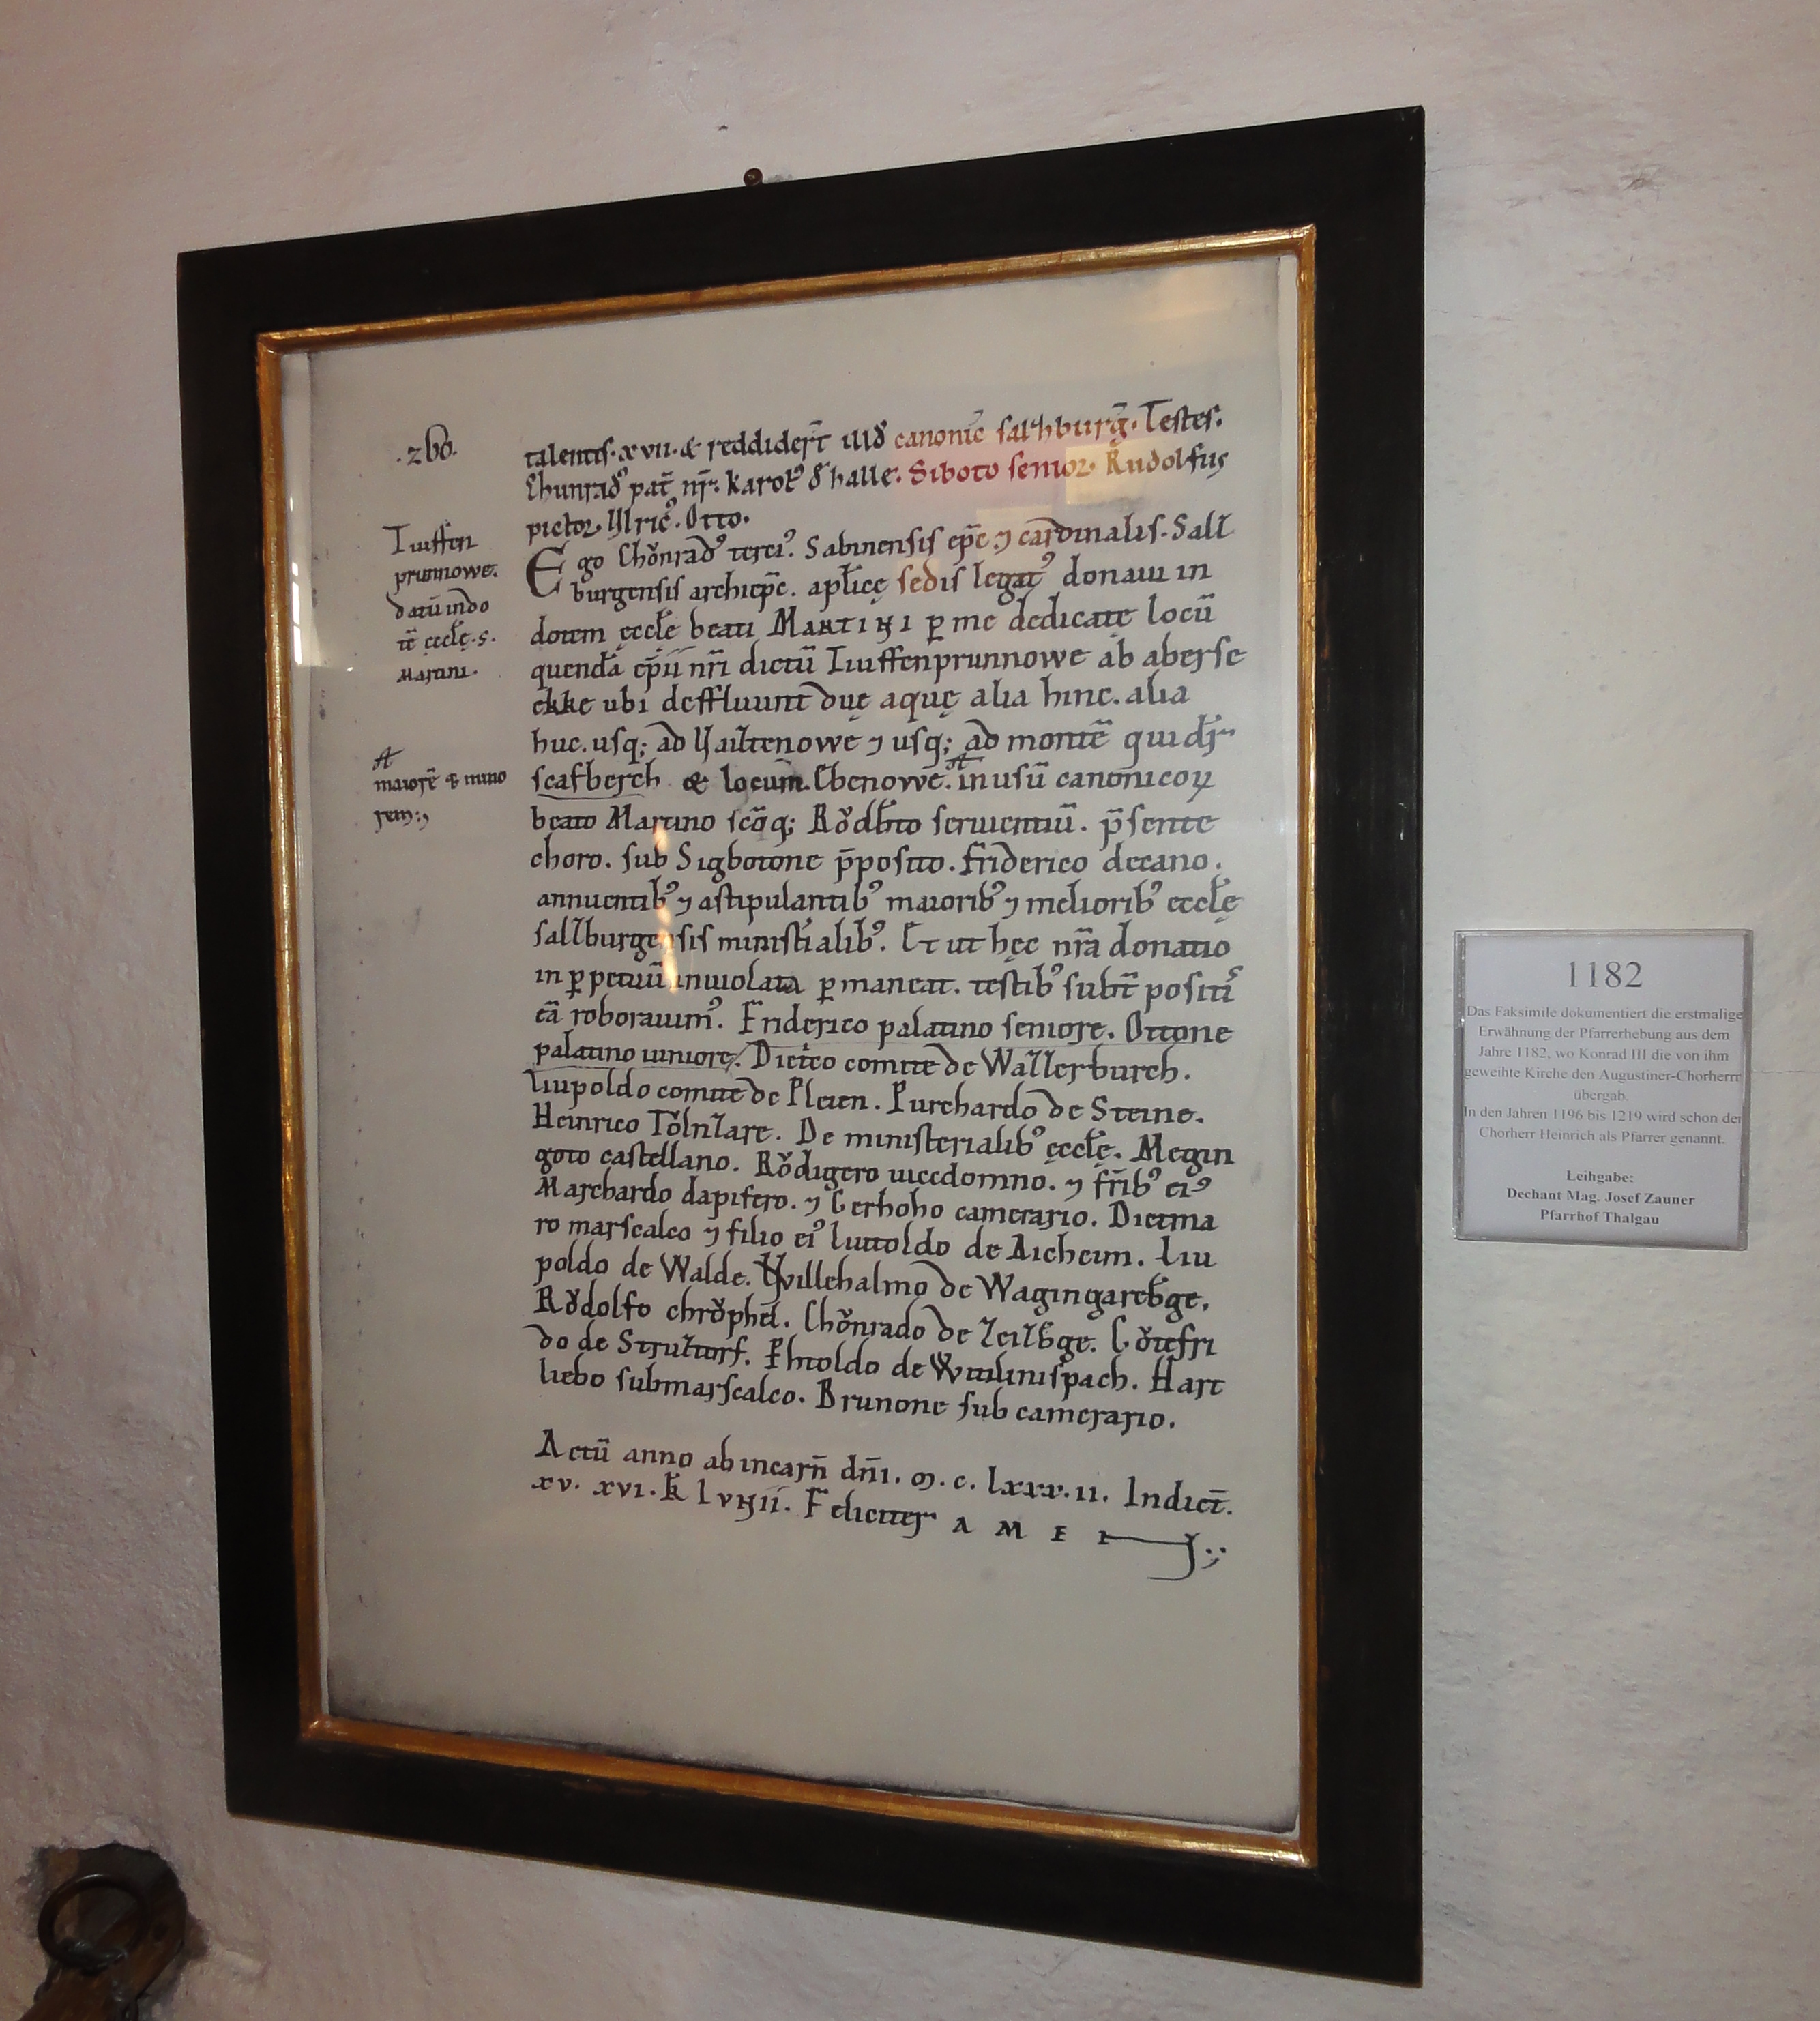 .260.
talentis. xvii. & reddider̄t illd᾽ canonic̄ salzburḡ. Testes.
Chunrad᾽ pat̄ nr̄. karol᾽ d᾽ halle. Siboto senior. Rudolfus
pictor. Ulric᾽. Otto.
Iuiffen
prunnowe.
datū indo
tē ecclę. s.
Martini.
Ego Chǒnrad᾽ terci᾽. Sabinensis ep̄c ⁊ cardinalis. Salz
burgensis archiep̄c. apl̄icę sedis legat᾽ donaui in
dotem ęcclę beati MARTINI ꝑ me dedicatę locū
quendā ep̄ii nr̄i dictū Iuiffenprunnowe ab aberse
ekke ubi deffluunt duę aquę alia hinc. alia
huc. usq; ad ⁊ usq; ad montē qui dr̄
scafberch & locum. Ebenowe. in usū canonicoꝝ
maiorē & mino
rem:,
beato Martino scōq; Rǒdb̄to seruientiū. p̄sente
choro. sub Sigbotone p̄posito. friderico decano.
annuentib᾽ ⁊ astipulantib᾽ maiorib᾽ ⁊ meliorib᾽ ecclę
salzburgensis minist̄alib᾽. Et ut hęc nr̄a donatio
in ꝑpetuū inuiolata ꝑmaneat. testib᾽ subt̄ positis
eā roborauim᾽. Friderico palatino seniore. Ottone
palatino iuniore. Dietrico comite de Wazzerburch.
Liupoldo comite de Pleien. Purchardo de Steine.
Heinrico Tǒlnzare. De ministerialib᾽ ęcclę. Megin
goto castellano. Rǒdigero uicedomno. ⁊ fr̄ib᾽ ei᾽
Marchardo dapifero. ⁊ Gerhoho camerario. Dietma
ro marscalco ⁊ filio ei᾽ liutoldo de Aicheim. Liu
poldo de Walde. Willehalmo de Wagingareb̄ge.
Rǒdolfo chrǒphel. Chǒnrado de Zeilb̄ge. Gǒtefri
do de Phtoldo de Hart
liebo submarscalco. Brunone sub camerario.
Actū anno ab incarn̄ dn̄i. ꝏ. c. lxxx. ii. Indict̄.
xv. xvi. k̄ Feliciter AMEN
1182
Das Faksimile dokumentiert die erstmalige
Erwähnung der Pfarrerhebung aus dem
Jahre 1182, wo Konrad III die von ihm
geweihte Kirche den Augustiner-Chorherrr
übergab.
In den Jahren 1196 bis 1219 wird schon der
Chorherr Heinrich als Pfarrer genannt.
Leihgabe:
Dechant Mag. Josef Zauner
Pfarrhof Thalgau